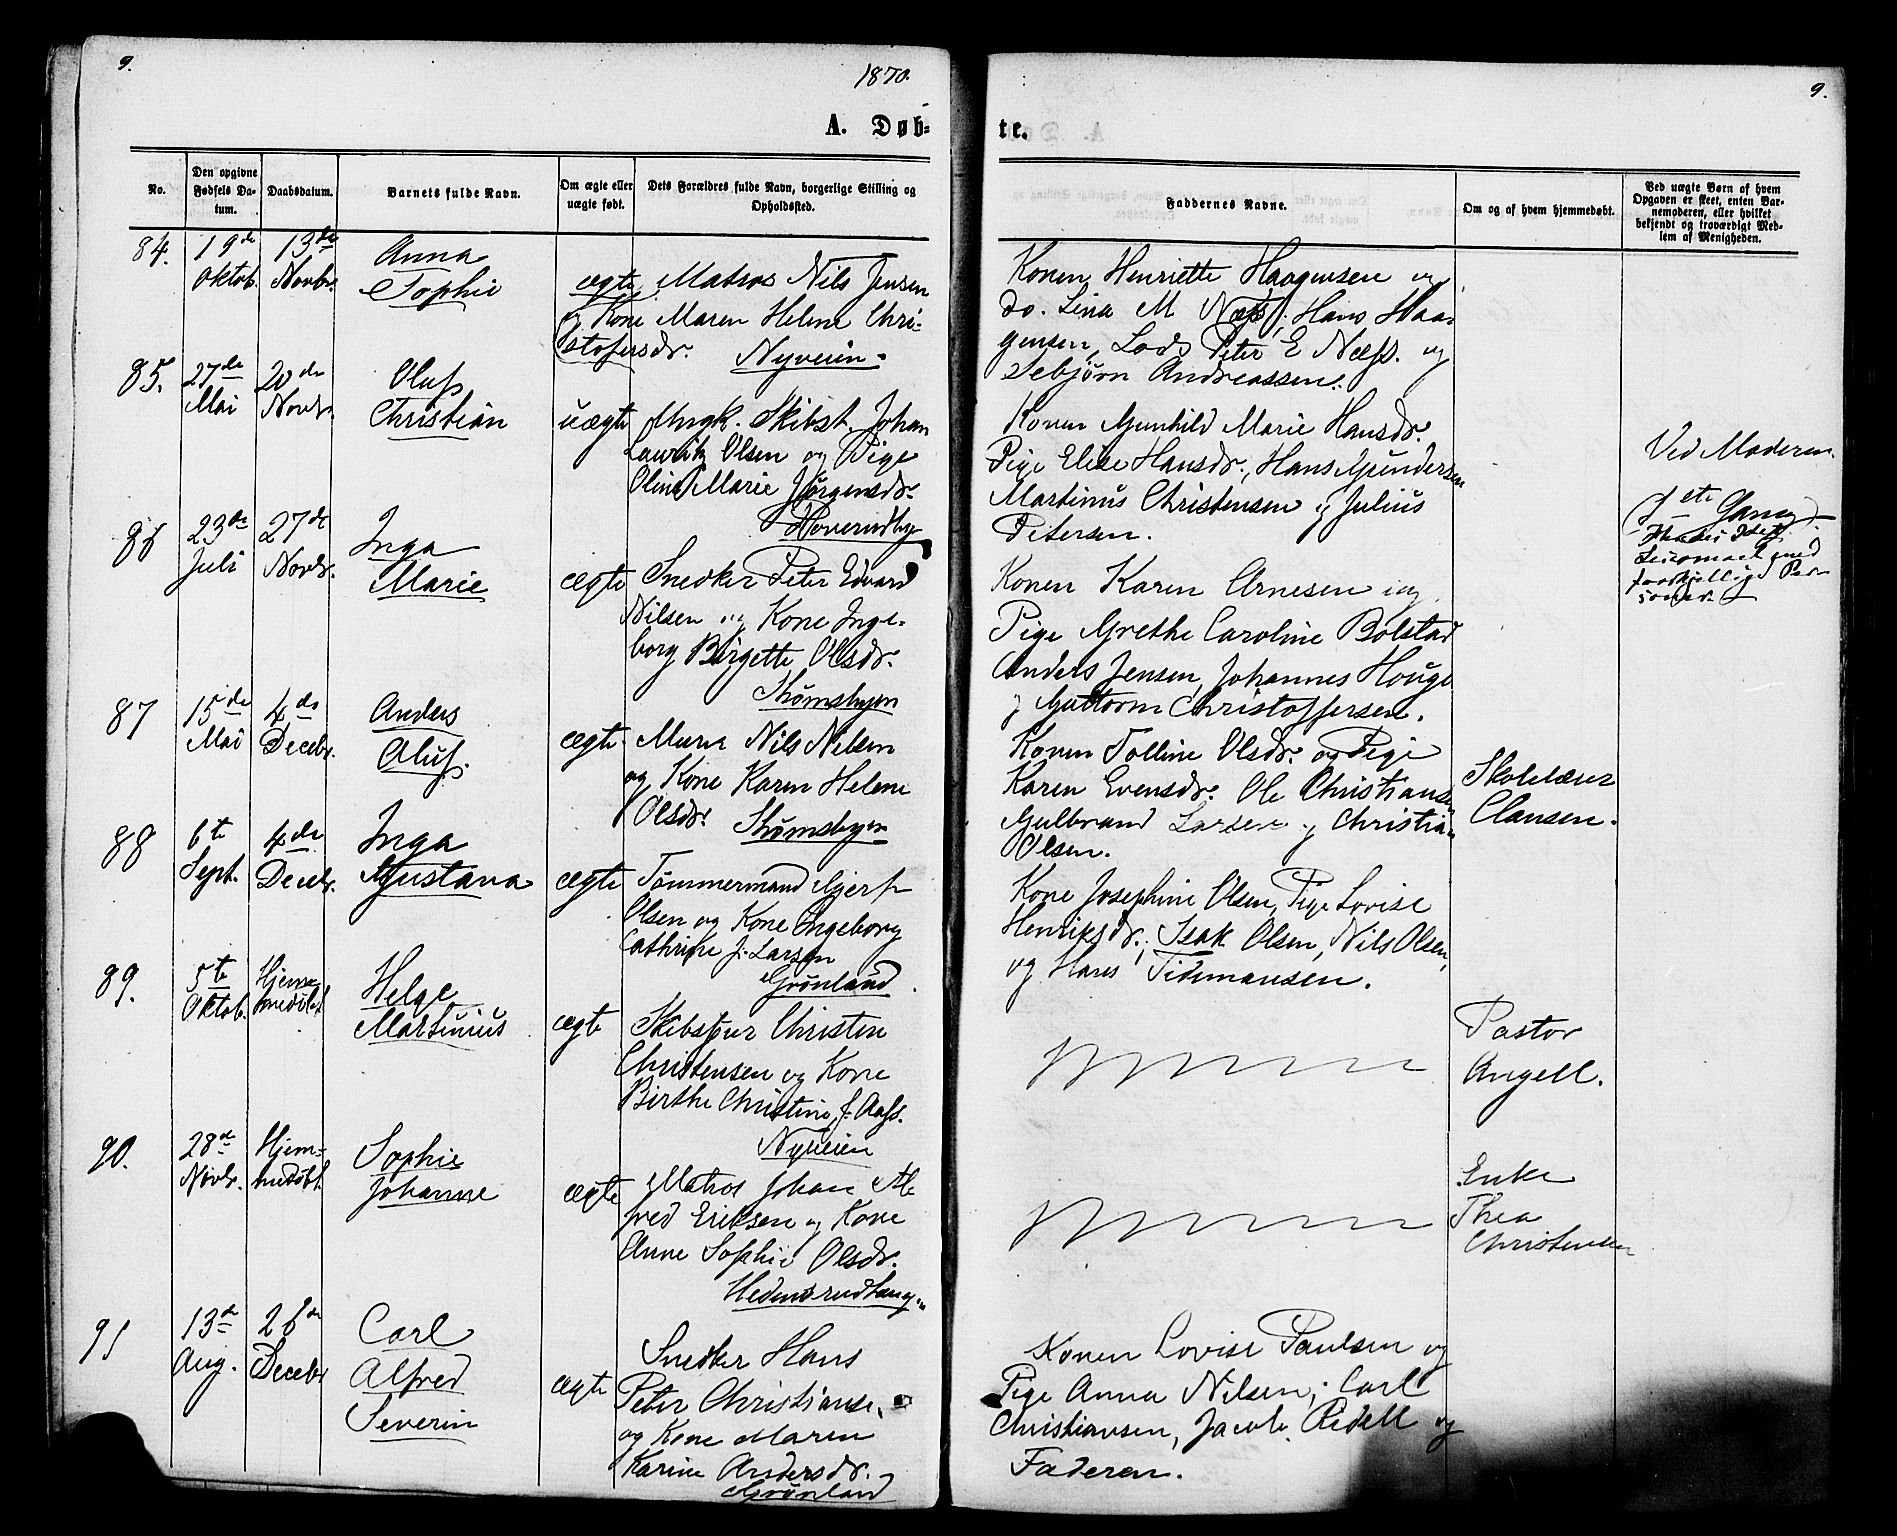 9.
1870.
A. Døb=
No.
Den opgivne Fødsels Da-
tum.
Daabsdatum.
Barnets fulde Navn.
Om ægte eller
uægte født.
Dets Forældres fulde Navn, borgerlige Stilling og
Opholdssted.
84.
19de
Oktob.
13de
Novbr.
Anna
Sophie
ægte
Matros Nils Jensen
og Kone Maren Helene Chri-
stofersdr.
Nyveien.
85.
27de
Mai
20de
Novbr.
Oluf
Christian
uægte
Ungk. Skibst. Johan
Lauritz Olsen og Pige
Oline Marie Jørgensdr.
86
23de
Juli
27de
Novbr.
Inga
Marie
ægte
Snedker Peter Edvard
Nilsen og Kone Inge-
borg Birgette Olsdr.
Strømsbyen
87
15de
Mai
4de
Decebr.
Anders
Oluf.
ægte
Murer Nils Nilsen
og Kone Karen Helene
Olsdr.
Strømsbyen
88
6te
Sept.
4de
Decebr.
Inga
Gustava
ægte
Tømmermand Gjert
Olsen og Kone Ingeborg
Cathrine f. Larsen
Grønland.
89.
5te
Oktob.
Hjem-
medøbt
Helge
Martinius
ægte
Christen
Christensen og Kone
Birthe Christine f. Aass.
Nyveien
90.
28de
Novbr.
Hjem=
medøbt.
Sophie
Johanne
ægte
Matros Johan Al-
fred Eriksen og Kone
Anne Sophie Olsdr.
91
13de
Aug.
26de
Decebr
Carl
Alfred
Severin
ægte
Snedker Hans
Peter Christianse.
og Kone Maren
Karine Andersdr.
Grønland
9.
te.
Faddernes Navne.
Om og af hvem hjemmedøbt.
Ved uægte Børn af hvem
Opgaven er skeet, enten Bar-
nemoderen, eller hvilket
bekjendt og troværdigt Med-
lem af Menigheden.
Konen Henriette Haagensen og
do. Lina M Næss; Hans Haa-
gensen, Lods Peter E Næss. og
Sebjørn Andreassen.
Konen Gunhild Marie Hansdr.
Pige Elise Hansdr., Hans Gundersen
Martinus Christensen og Julius
Petersen.
Ved Moderen.
1ste Gang
Konen Karen Arnesen og
Pige Grethe Caroline Bolstad
Anders Jensen, Johannes Houge
og Guttorm Christoffersen.
Konen Tolline Olsdr. og Pige
Karen Evensdr. Ole Christiansen
Gulbrand Larsen og Christian
Olsen.
Skolelærer
Clausen.
Kone Josephine Olsen, Pige Lovise
Henriksdr.; Isak Olsen, Nils Olsen,
og Hans Tidemansen.
Pastor
Angell.
Enke
Thea
Christensen
Konen Lovise Paulsen og
Pige Anna Nilsen; Carl
Christiansen, Jacob Ridell og
Faderen.